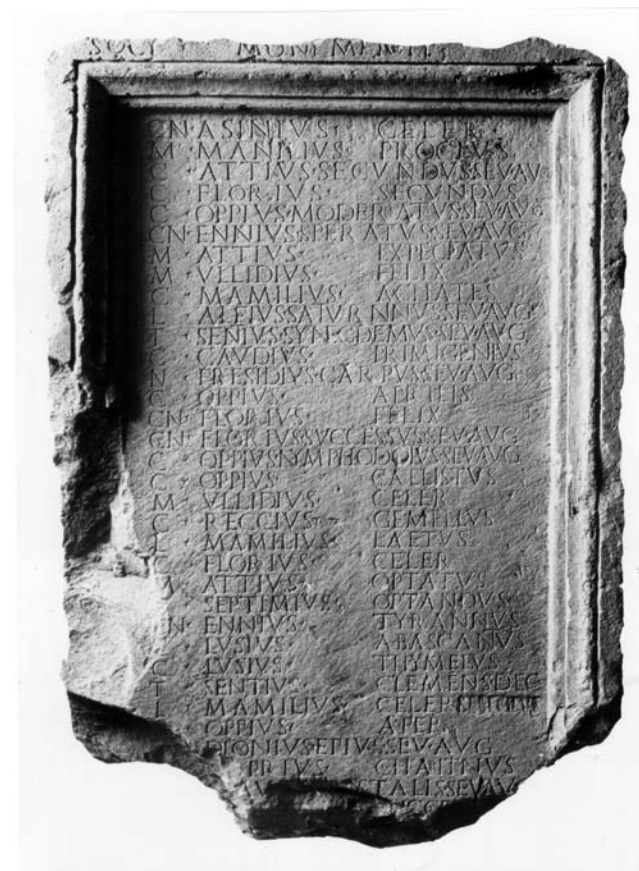 SOCI MONIMENTI
CN ASINIVS · CELER
M · MANLIVS · PROCLVS
C · ATTIVS · SECVNDVS · SEV · AV
C · FLORIVS · SECVNDVS
C · OPPIVS · MODERATVS · SEV · AVG
CN ENNIVS · SPERATVS · SEV · AVG
M · ATTIVS · EXPECTATVS
M · VLLIDIVS · FELIX
C · MAMILIVS · ACHATES
L · ALEIVS · SATVRNINVS · SEV · AVG
T · SENIVS · SYNECDEMVS · SEV · AVG
C · CAVDIVS · PRIMIGENIVS
N · FRESIDIVS · CARPVS · SEV · AVG
C · OPPIVS
CN · FLORIVS · FELIX
CN · FLORIVS · SVCCESSVS · SEV · AVG
C · OPPIVS · NYMPHODOTVS · SEV · AVG
C · OPPIVS · CALLISTVS
M · VLLIDIVS · CELER
C · RECCIVS · GEMELLVS
L · MAMILIVS · LAETVS
C · FLORIVS · CELER
M · ATTIVS · OPTATVS
SEPTIMIVS · OPTANDVS
CN · ENNIVS · TYRANNVS
LVSIVS · ABASCANVS
C · LVSIVS · THYMELVS
T · SENTIVS · CLEMENS · DEC
L · MAMILIVS · CELER
OPPIVS · APER
DIONIVS · EPIVS · SEV · AVG
PRIVS
TALIS · SEV · AVG